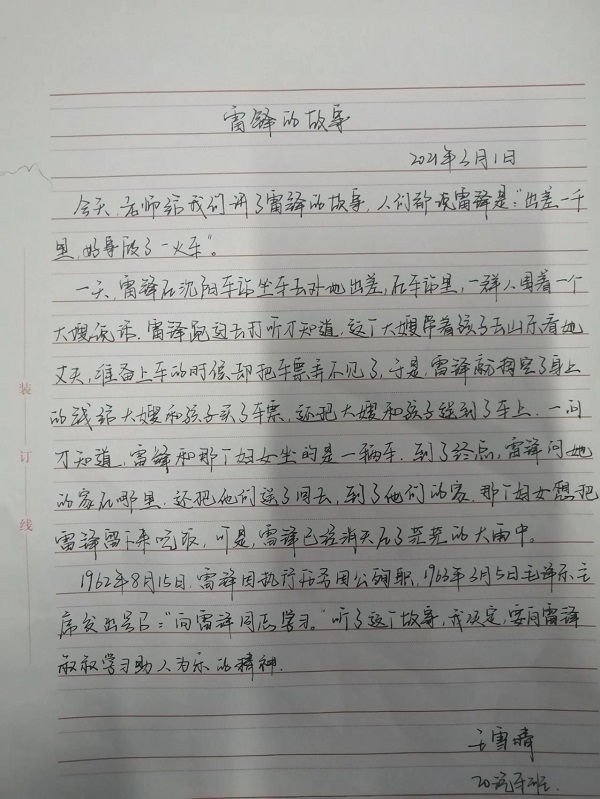 雷锋的故事
2021年3月1日
今天,老师给我们讲了雷锋的故事,人们都说雷锋是:"出差一千
里,好事做了一火车"。
一天,雷锋在沈阳车站坐车去外地出差,在车站里,一群人围着一个
大嫂说话,雷锋跑过去打听才知道,这个大嫂带着孩子去山东看她
丈夫,准备上车的时候却把车票弄不见了,于是,雷锋就掏空了身上
的钱给大嫂和孩子买了车票,还把大嫂和孩子送到了车上,一问
才知道,雷锋和那个妇女坐的是一辆车,到了终点,雷锋问她
的家在哪里,还把他们送了回去,到了他们的家,那个妇女想把
雷锋留下来吃饭,可是,雷锋已经消失在了茫茫的大雨中。
装
订
线
1962年8月15日,雷锋因执行任务因公殉职,1963年3月5日毛泽东主
席发出号召:"向雷锋同志学习。"听了这个故事,我决定,要向雷锋
叔叔学习助人为乐的精神.
王雪晴
20汽车班.